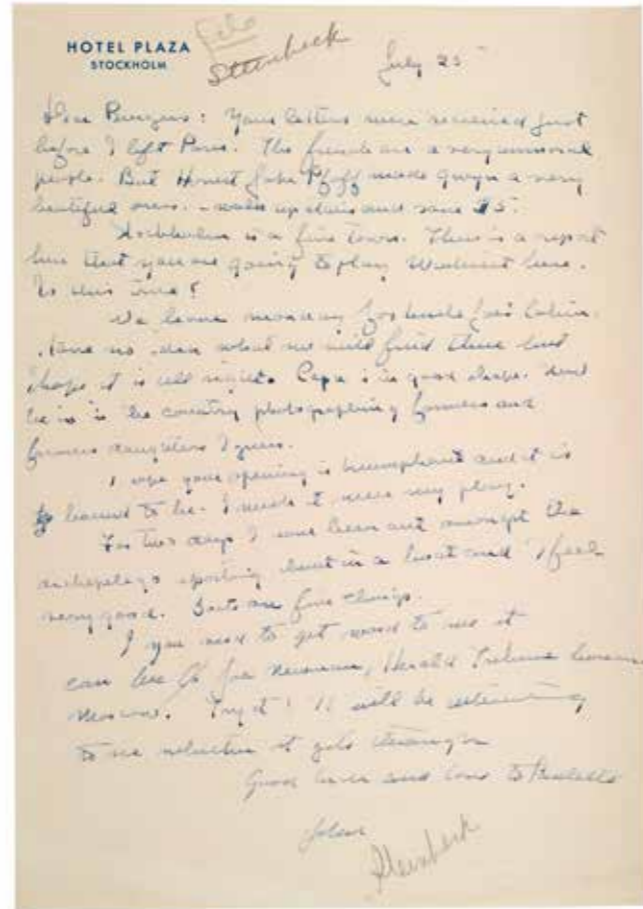 HOTEL PLAZA
STOCKHOLM
File
Steinbeck
July 25
Dear Burgess: Your letters were received just
before I left Paris. The french are a very immoral
people. But Honest Jake Pfoff made Gwyn a very
beautiful one. – walk up stairs and save 25.
Stockholm is a fine town. There is a report
here that you are going to play here.
Is this true?
We leave monday for
Have no idea what we will find there but
hope it is all right. Capa is in good shape. And
he is in the country photographing farmers and
farmers daughters I guess.
I hope your opening is triumphant and it is
bound to be. I wish it were my play.
For two days I have been out amongst the
archipelago in a boat and I feel
very good. Boats are fine things.
If you need to get word to me it
can be c/o Joe Newman, Herald Tribune bureau
Moscow. Try it! It will be interesting
to see whether it gets through
Good luck and love to Paulette
John
Steinbeck